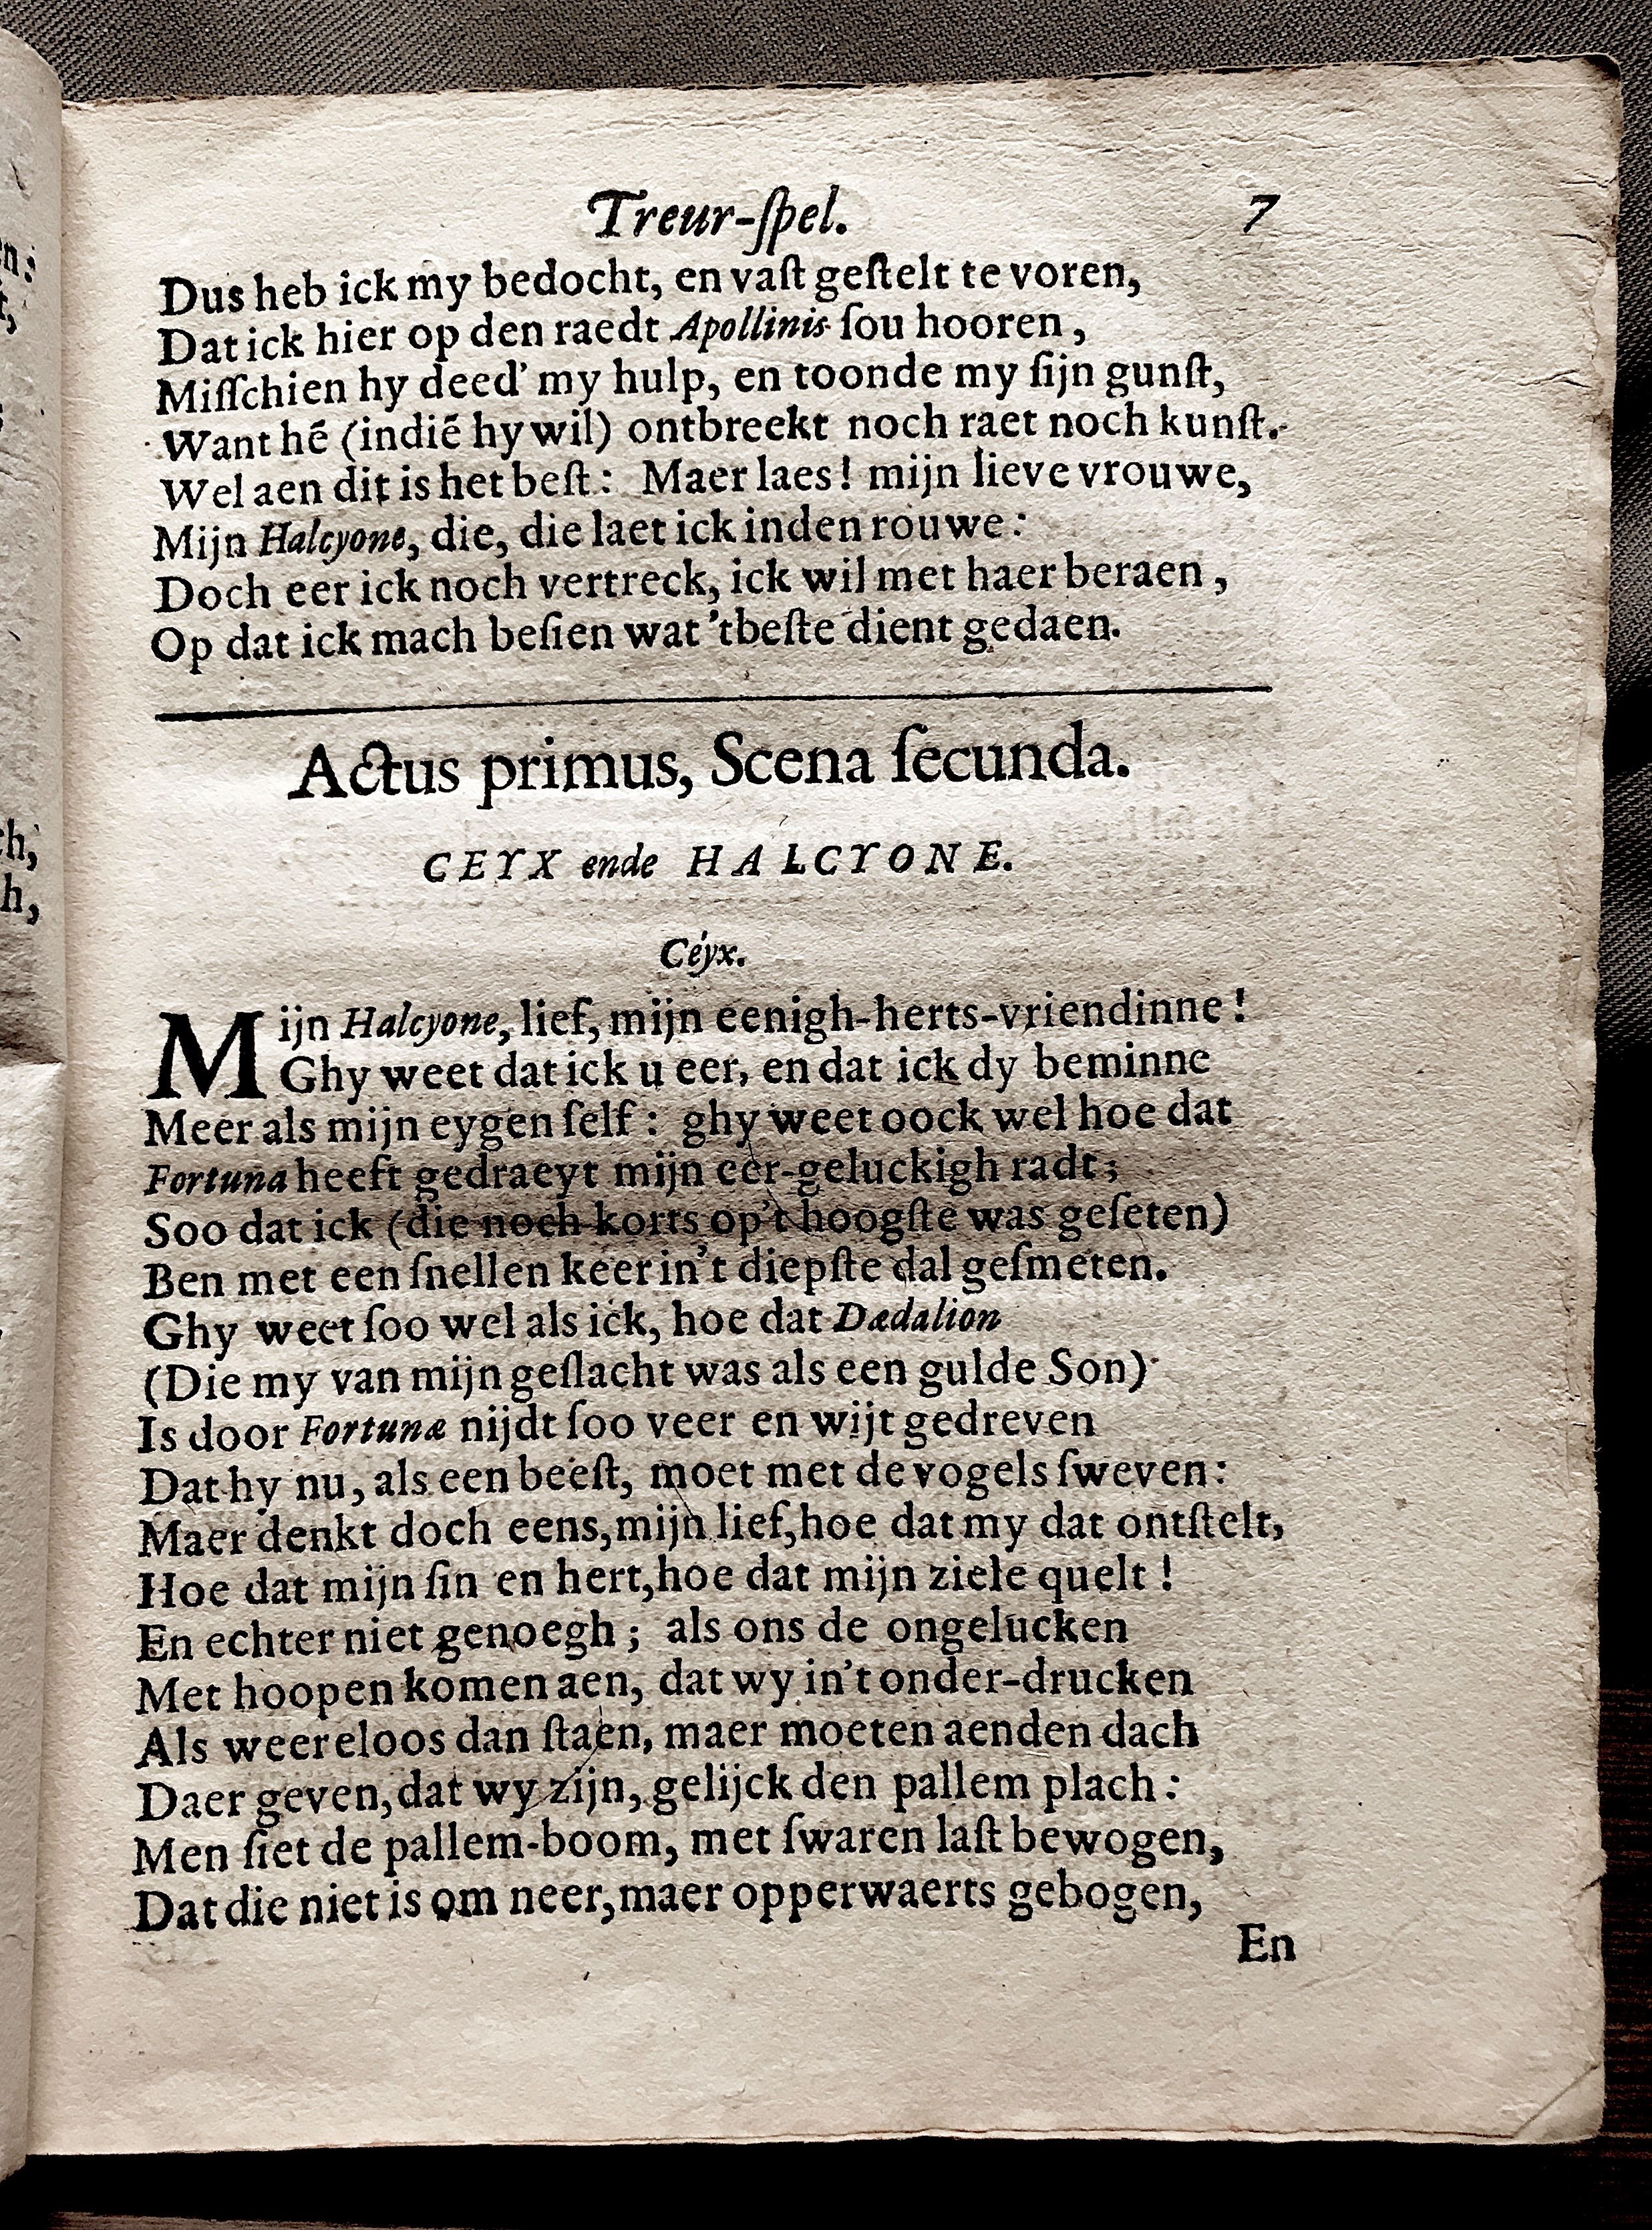 Treur-ſpel. 7
Dus heb ick my bedocht, en vaſt geſtelt te voren,
Dat ick hier op den raedt Apollinis ſou hooren,
Miſſchien hy deed' my hulp, en toonde my ſijn gunſt,
Want hē (indiē hy wil) ontbreekt noch raet noch kunſt.
Wel aen dit is het beſt: Maer laes! mijn lieve vrouwe,
Mijn Halcyone, die, die laet ick inden rouwe:
Doch eer ick noch vertreck, ick wil met haer beraen,
Op dat ick mach beſien wat 'tbeſte dient gedaen.
Actus primus, Scena ſecunda.
CEYX ende HALCYONE.
Céyx.
Mijn Halcyone, lief, mijn eenigh-herts-vriendinne!
Ghy weet dat ick u eer, en dat ick dy beminne
Meer als mijn eygen ſelf: ghy weet oock wel hoe dat
Fortuna heeft gedraeyt mijn eer-geluckigh radt;
Soo dat ick (die noch korts op't hoogſte was geſeten)
Ben met een ſnellen keer in't diepſte dal geſmeten.
Ghy weet ſoo wel als ick, hoe dat Dædalion
(Die my van mijn geſlacht was als een gulde Son)
Is door Fortunæ nijdt ſoo veer en wijt gedreven
Dat hy nu, als een beeſt, moet met de vogels ſweven:
Maer denkt doch eens, mijn lief, hoe dat my dat ontſtelt,
Hoe dat mijn ſin en hert, hoe dat mijn ziele quelt!
En echter niet genoegh; als ons de ongelucken
Met hoopen komen aen, dat wy in't onder-drucken
Als weereloos dan ſtaen, maer moeten aenden dach
Daer geven, dat wy zijn, gelijck den pallem plach:
Men ſiet de pallem-boom, met ſwaren laſt bewogen,
Dat die niet is om neer, maer opperwaerts gebogen,
En
en:
t,
ch,
h,